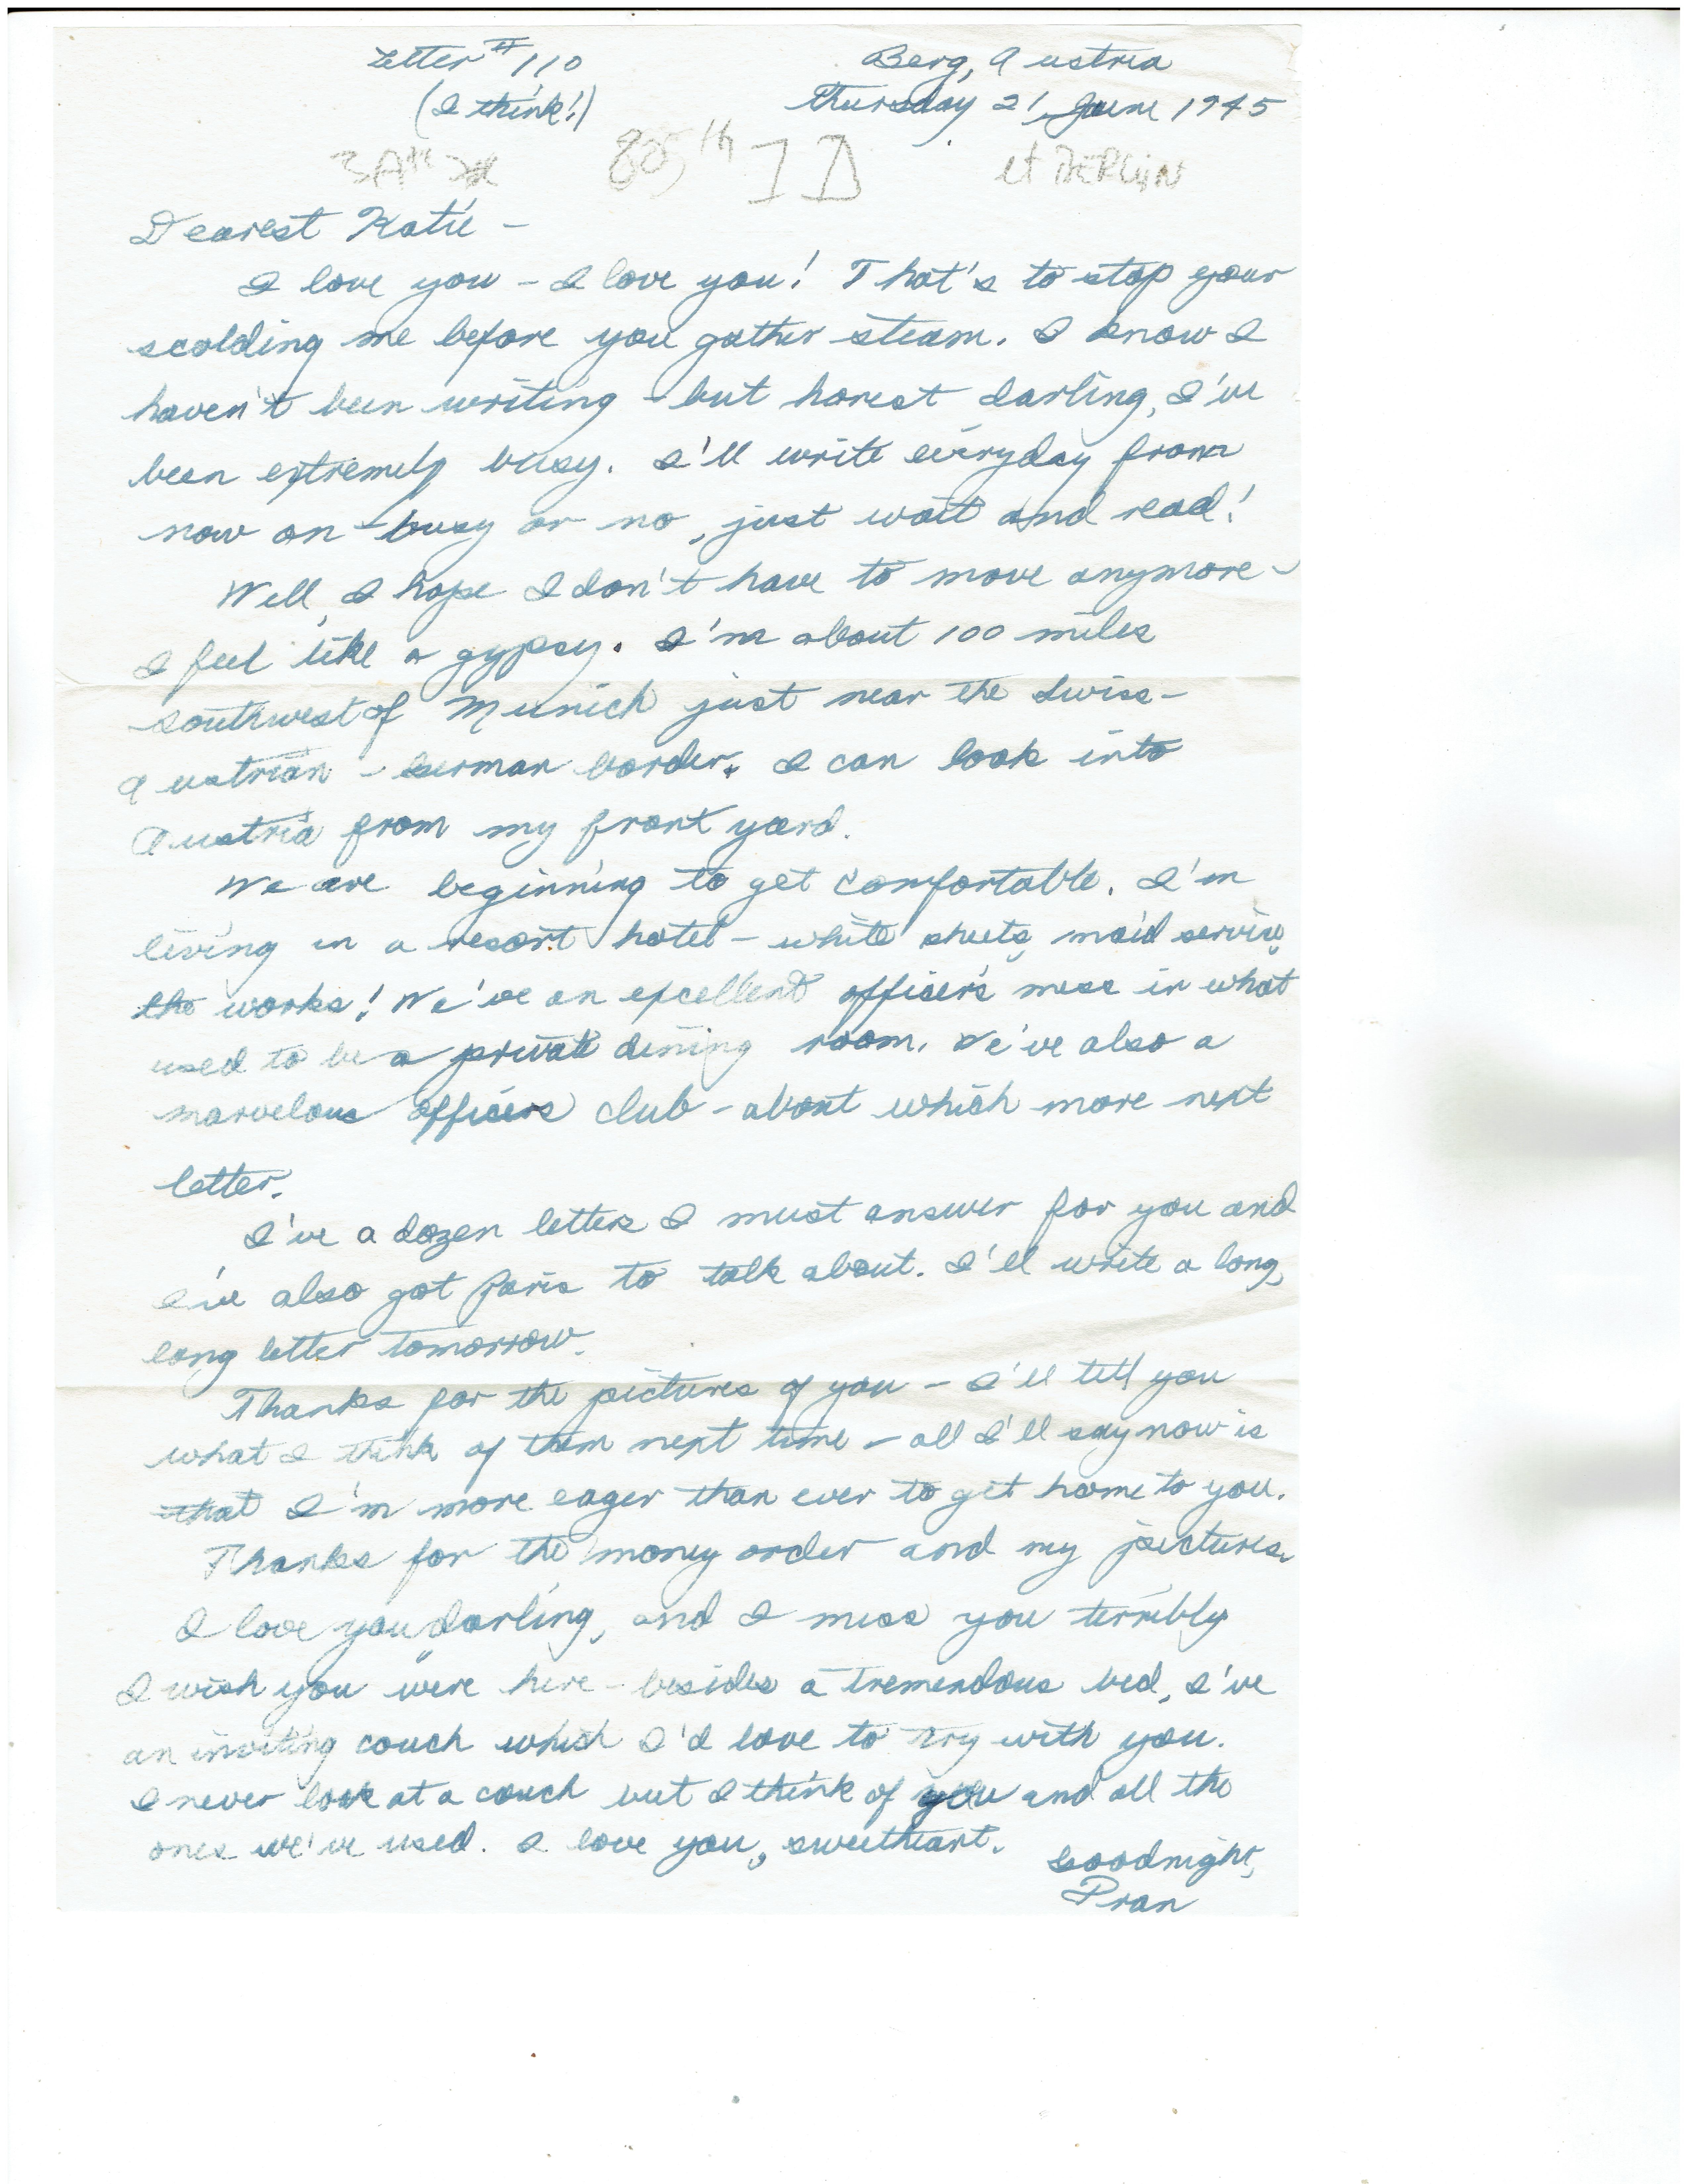 Letter # 110
(I think!)
Berg, Austria
Thursday 21 June 1945
ID
Dearest Katie -
I love you - I love you! That's to stop your
scolding me before you gather steam. I know I
haven't been writing - but honest darling, I've
been extremely busy. I'll write everyday from
now on - busy or no, just wait and read!
Well, I hope I don't have to move anymore -
I feel like a gypsy. I'm about 100 miles
southwest of Munich just near the Swiss -
Austrian - German border. I can look into
Austria from my front yard.
We are beginning to get comfortable. I'm
living in a resort hotel - white sheets, maid service,
the works! We've an excellent officer's mess in what
used to be a private dining room. We've also a
marvelous officers club - about which more next
letter.
I've a dozen letters I must answer for you and
I've also got Paris to talk about. I'll write a long,
long letter tomorrow.
Thanks for the pictures of you - I'll tell you
what I think of them next time - all I'll say now is
that I'm more eager than ever to get home to you.
Thanks for the money order and my pictures.
I love you darling, and I miss you terribly
I wish you were here - besides a tremendous bed, I've
an inviting couch which I'd love to try with you.
I never look at a couch but I think of you and all the
ones we've used. I love you, sweetheart.
Goodnight,
Pran